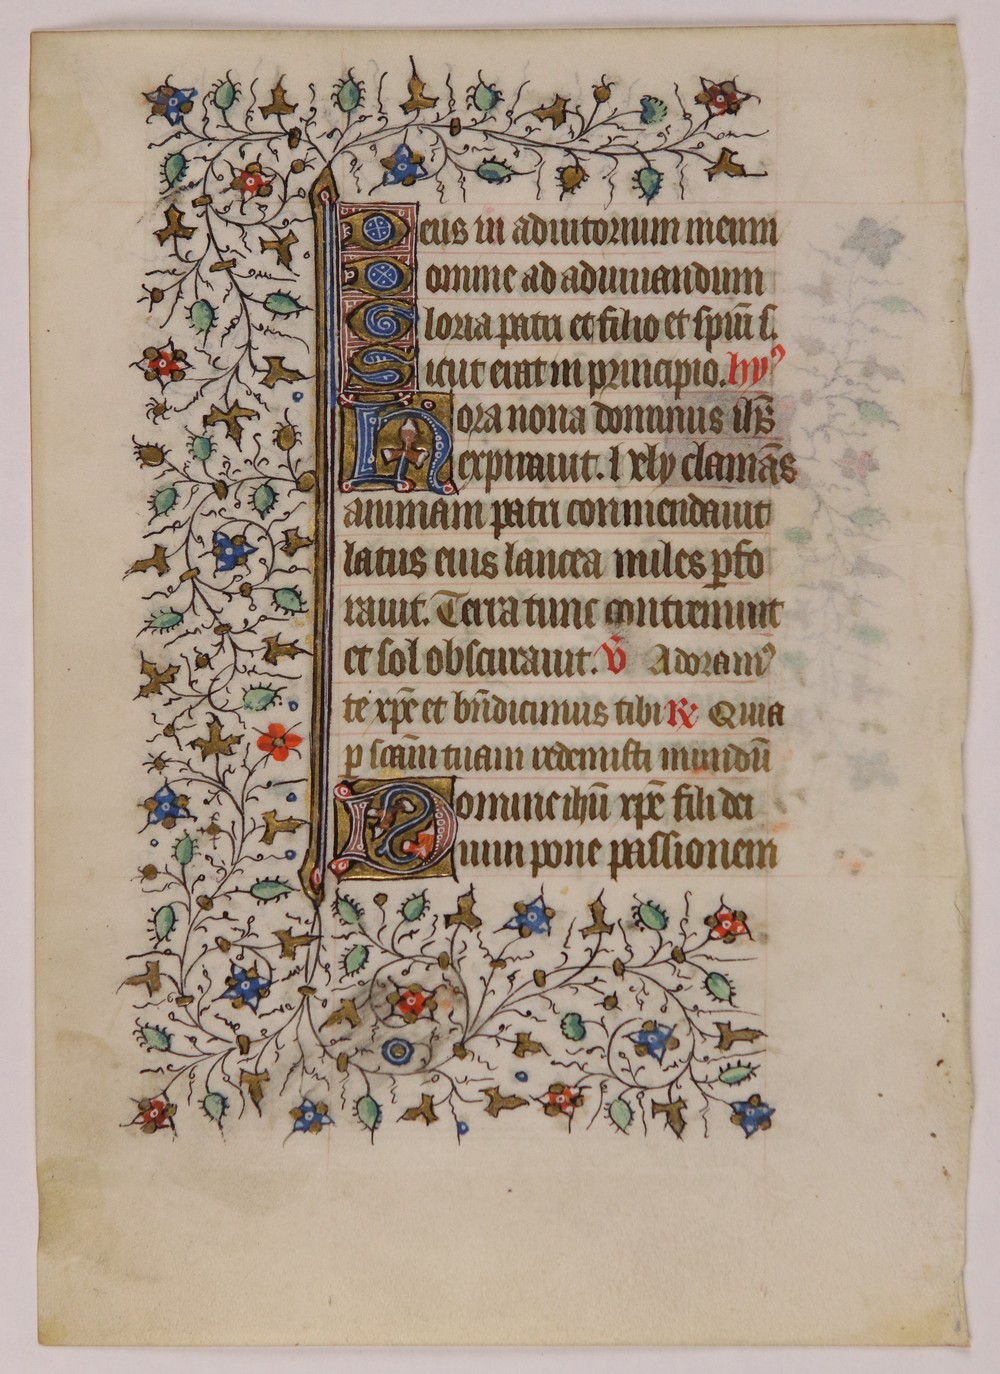 Deus in adiutorium meum
Domine ad adiuuandum
Gloria patri et filio et spiũ s.
Sicut erat in principio. hyꝰ
Hora nona dominus ihs̃
expirauit. hely clamãs
animam patri commendauit
latus eius lancea miles ꝑfo
rauit. Terra tunc contremuit
et sol obscurauit. ℣ Adoramꝰ
te xp̃e et bñdicimus tibi ℟ Quia
ꝑ scãm tuam redemisti mundũ
Domine ihũ xp̃e fili dei
uiui pone passionem